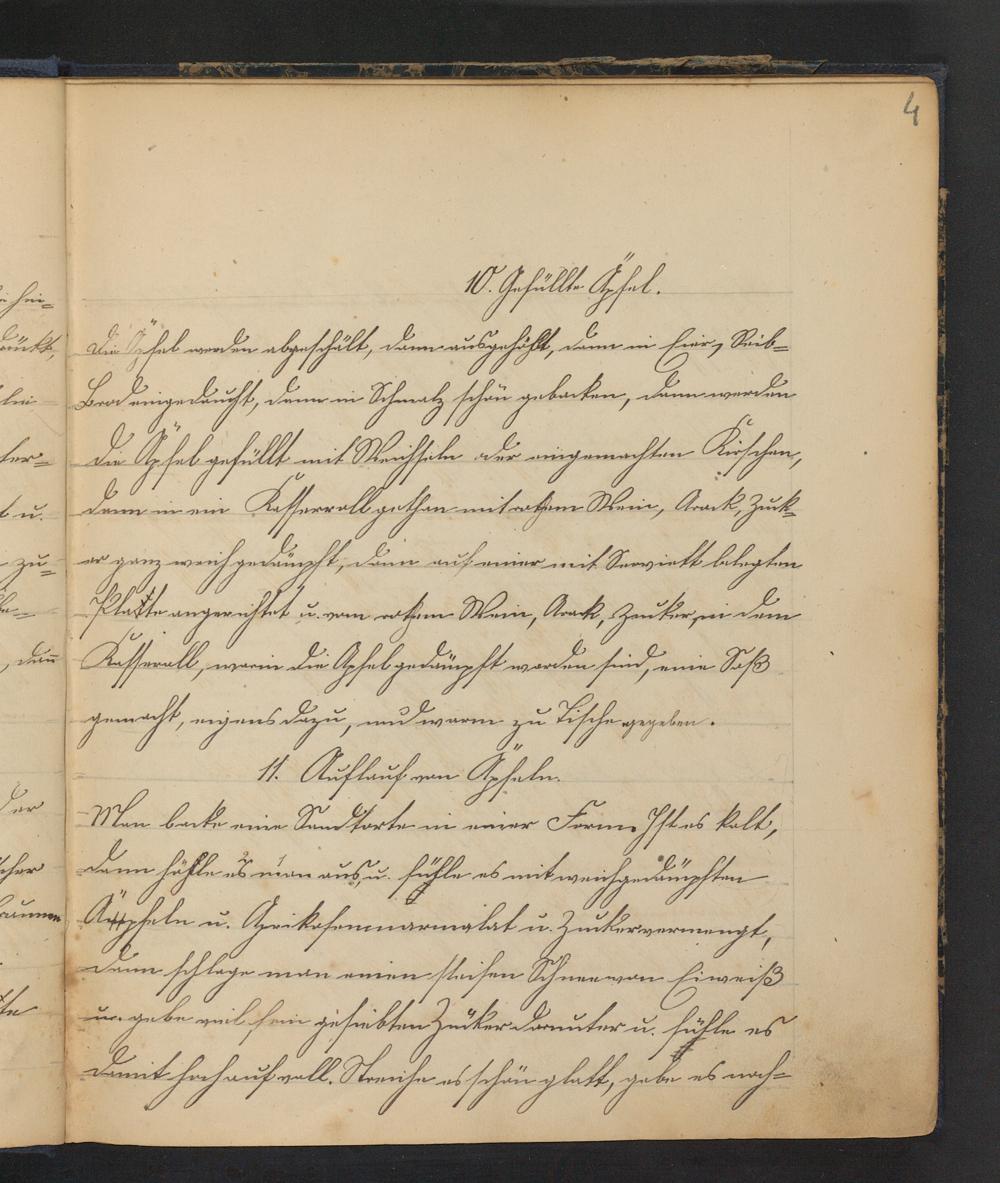 4
10. Gefüllte Äpfel.
Die Äpfel werden abgeschält, dann ausgehöhlt, dann in Eier, Reib=
Brod eingedaucht, dann in Schmalz schön gebacken, dann werden
die Äpfel gefüllt mit Weichseln oder eingemachten Kirschen,
dann in ein Kasserroll gethan mit rothem Wein, Arack, Zuck-
er ganz weich gedämpft, dann auf einer mit Serviett belegten
Platte angerichtet u. vom rothem Wein, Arack, Zucker, in dem
Kasseroll, worin die Äpfel gedämpft worden sind, eine Soß
gemacht, eigens dazu, und warm zu Tische gegeben.
11. Auflauf von Äpfeln.
Man backe eine Sandtorte in einer Form. Ist es kalt,
dann höhle es man aus, u. fühle es mit weichgedämpften
Äpfeln u. Aprikosenmarmalat u. Zucker vermengt,
dann schlage man einen steifen Schnee von Eiweiß
u. gebe viel fein gesiebten Zucker darunter u. fühle es
damit hoch auf voll. Streiche es schön glatt, gebe es noch=
hei=
drückt,
ter=
t u.
zu=
, dan̄
der